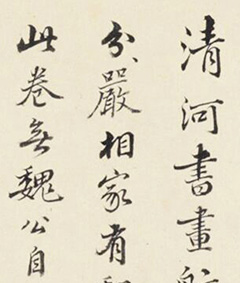 清河書畫舫
分嚴相家有
此卷無魏公自